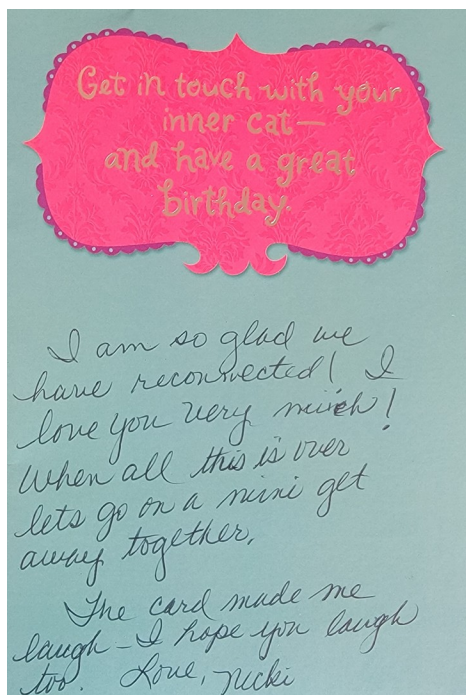 Get in touch with your
inner cat—
and have a great
birthday.
I am so glad we
have reconnected! I
love you very much!
When all this is over
lets go on a mini get
away together.
The card made me
laugh - I hope you laugh
too. Love, Nicki